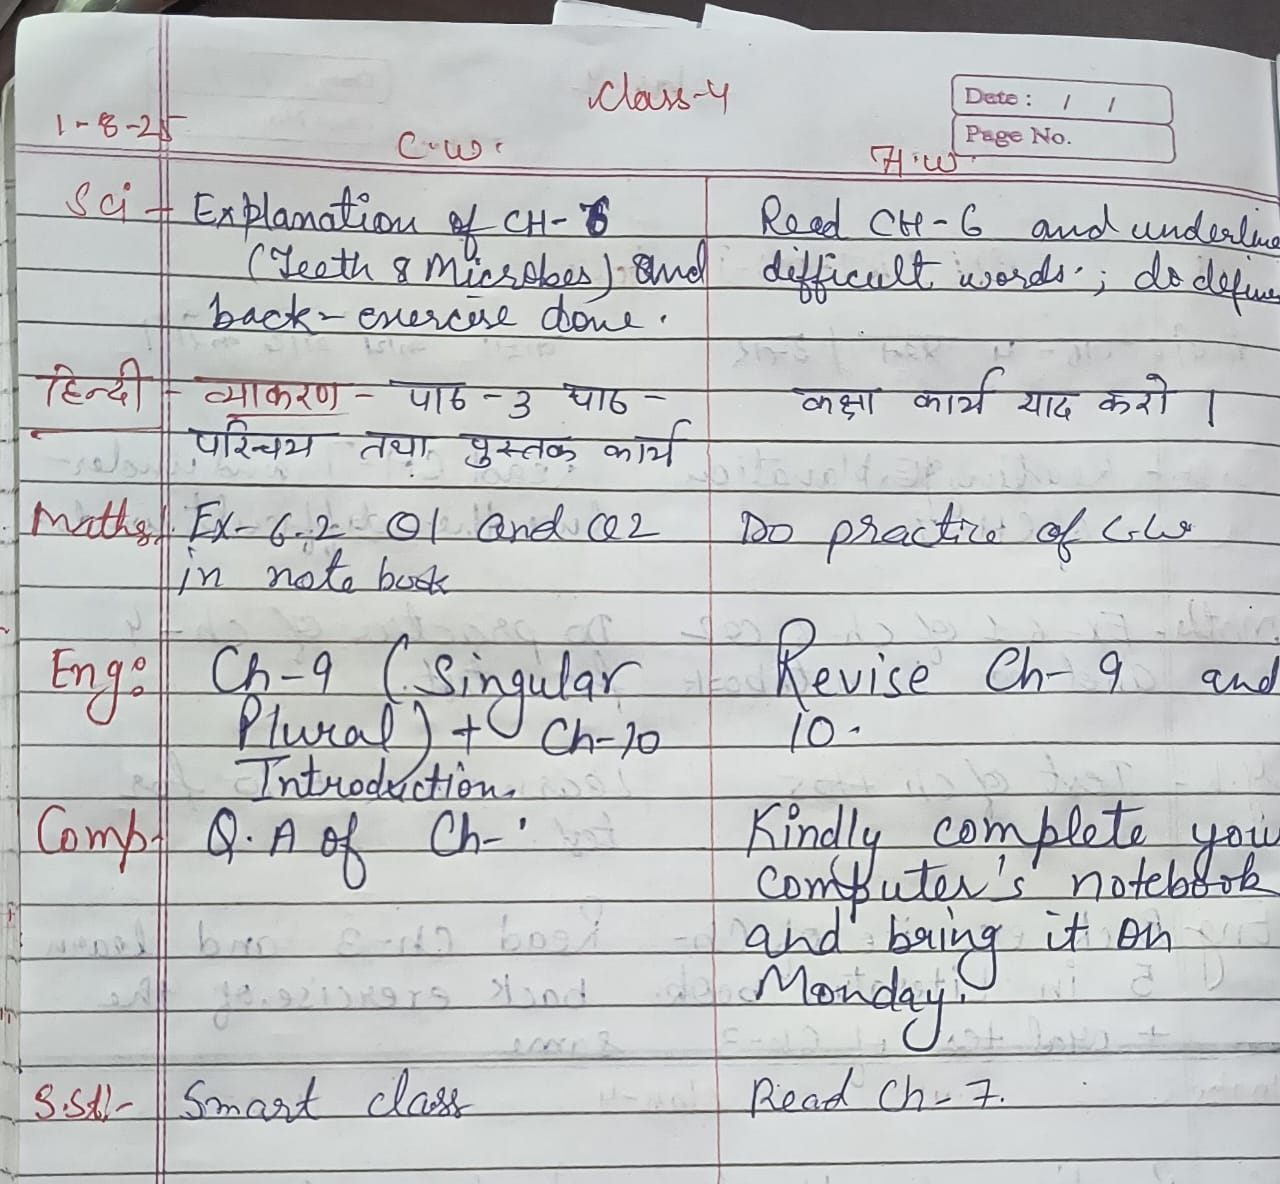 Class-4
Date: / /
Page No.
1-8-25
C.W.
H.W.
Sci - Explanation of CH-6
(Teeth & Microbes) and
back-exercise done.
Read CH-6 and underline
difficult words; do define
हिन्दी - व्याकरण - पाठ-3 पाठ-
परिचय तथा पुस्तक कार्य
कक्षा कार्य याद करो।
Maths Ex-6.2 Q1 and Q2
in note book
Do practice of C.W
Eng: Ch-9 (Singular
Plural) + Ch-10
Introduction.
Revise Ch-9 and
10.
Comp- Q.A of Ch-
Kindly complete you
computer's notebook
and bring it on
Monday.
S.St- Smart class
Read Ch-7.